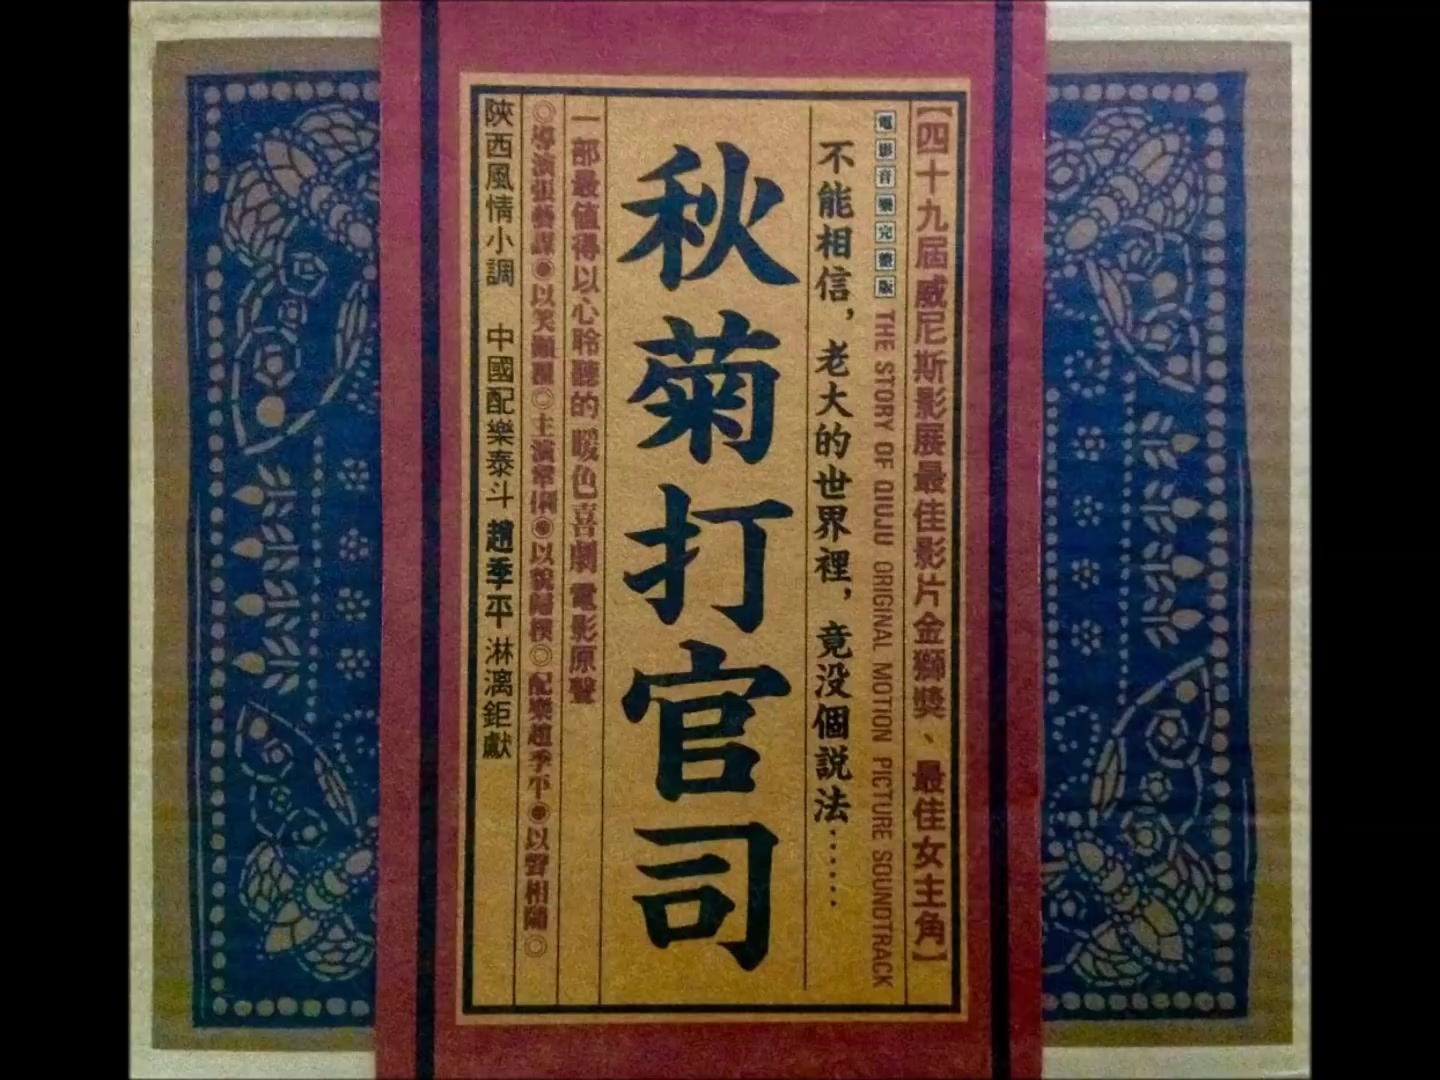 【四十九屆威尼斯影展最佳影片金獅獎、最佳女主角】
電影音樂完整版 THE STORY OF QIUJU ORIGINAL MOTION PICTURE SOUNDTRACK
不能相信，老大的世界裡，竟没個説法⋯⋯
秋菊打官司
一部最值得以心聆聽的 暖色喜劇 電影原聲
◎導演張藝謀◉以笑顛覆◎主演鞏俐◉以貌歸樸◎配樂趙季平◉以聲相隨◎
陝西風情小調 中國配樂泰斗 趙季平 淋漓鉅獻